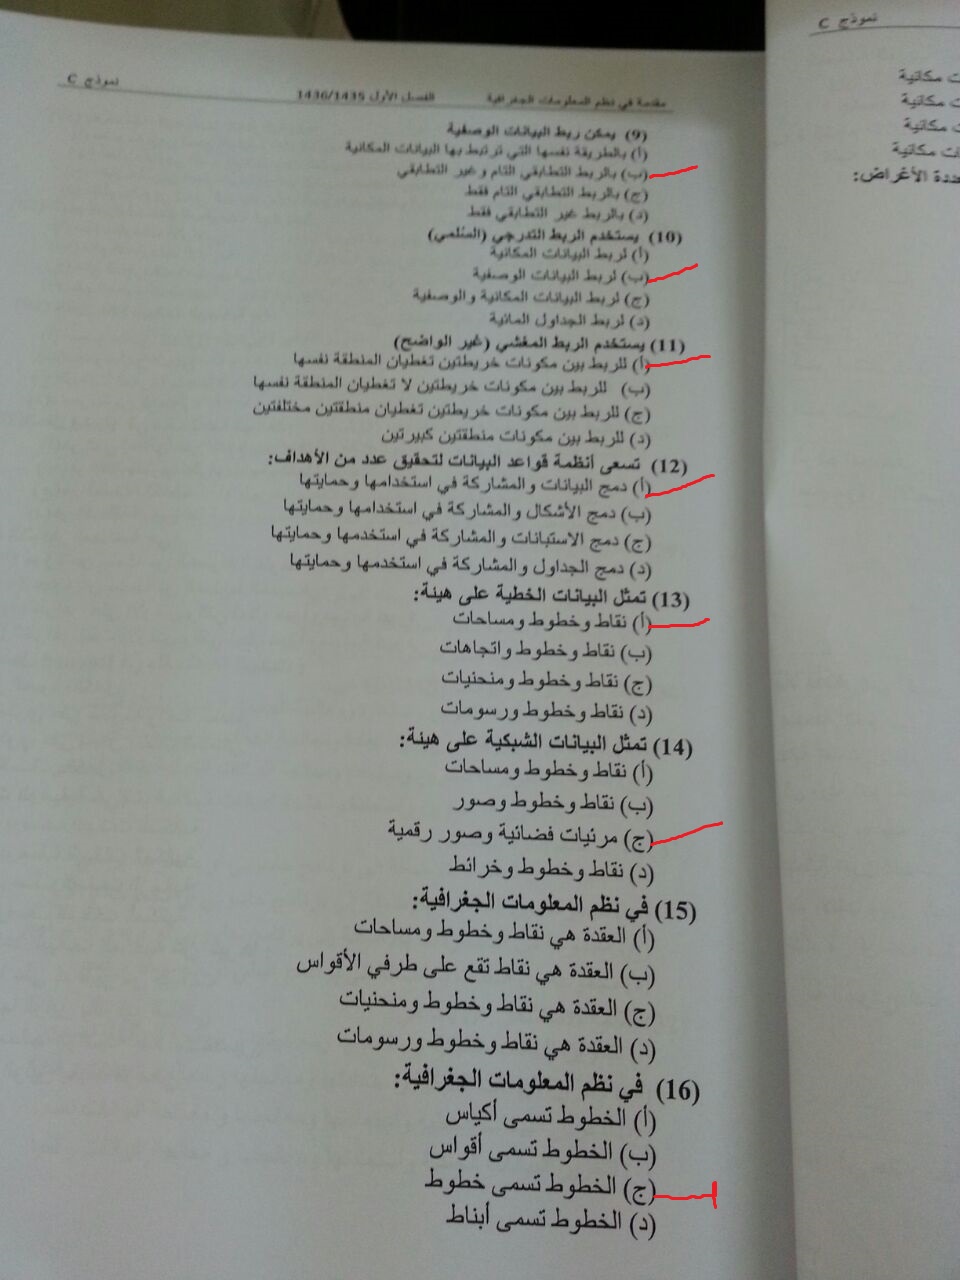 مقدمة في نظم المعلومات الجغرافية الفصل الأول 1436/1435 نموذج C
(9) يمكن ربط البيانات الوصفية
(أ) بالطريقة نفسها التي ترتبط بها البيانات المكانية
(ب) بالربط التطابقي التام وغير التطابقي
(ج) بالربط التطابقي التام فقط
(د) بالربط غير التطابقي فقط
(10) يستخدم الربط التدرجي (السلمي)
(أ) لربط البيانات المكانية
(ب) لربط البيانات الوصفية
(ج) لربط البيانات المكانية والوصفية
(د) لربط الجداول المائية
(11) يستخدم الربط المغشي (غير الواضح)
(أ) للربط بين مكونات خريطتين تغطيان المنطقة نفسها
(ب) للربط بين مكونات خريطتين لا تغطيان المنطقة نفسها
(ج) للربط بين مكونات خريطتين تغطيان منطقتين مختلفتين
(د) للربط بين مكونات منطقتين كبيرتين
(12) تسعى أنظمة قواعد البيانات لتحقيق عدد من الأهداف:
(أ) دمج البيانات والمشاركة في استخدامها وحمايتها
(ب) دمج الأشكال والمشاركة في استخدامها وحمايتها
(ج) دمج الاستبانات والمشاركة في استخدمها وحمايتها
(د) دمج الجداول والمشاركة في استخدمها وحمايتها
(13) تمثل البيانات الخطية على هيئة:
(أ) نقاط وخطوط ومساحات
(ب) نقاط وخطوط واتجاهات
(ج) نقاط وخطوط ومنحنيات
(د) نقاط وخطوط ورسومات
(14) تمثل البيانات الشبكية على هيئة:
(أ) نقاط وخطوط ومساحات
(ب) نقاط وخطوط وصور
(ج) مرئيات فضائية وصور رقمية
(د) نقاط وخطوط وخرائط
(15) في نظم المعلومات الجغرافية:
(أ) العقدة هي نقاط وخطوط ومساحات
(ب) العقدة هي نقاط تقع على طرفي الأقواس
(ج) العقدة هي نقاط وخطوط ومنحنيات
(د) العقدة هي نقاط وخطوط ورسومات
(16) في نظم المعلومات الجغرافية:
(أ) الخطوط تسمى أكياس
(ب) الخطوط تسمى أقواس
(ج) الخطوط تسمى خطوط
(د) الخطوط تسمى أبناط
نموذج C
مكانية
مكانية
مكانية
ات مكانية
حددة الأغراض: